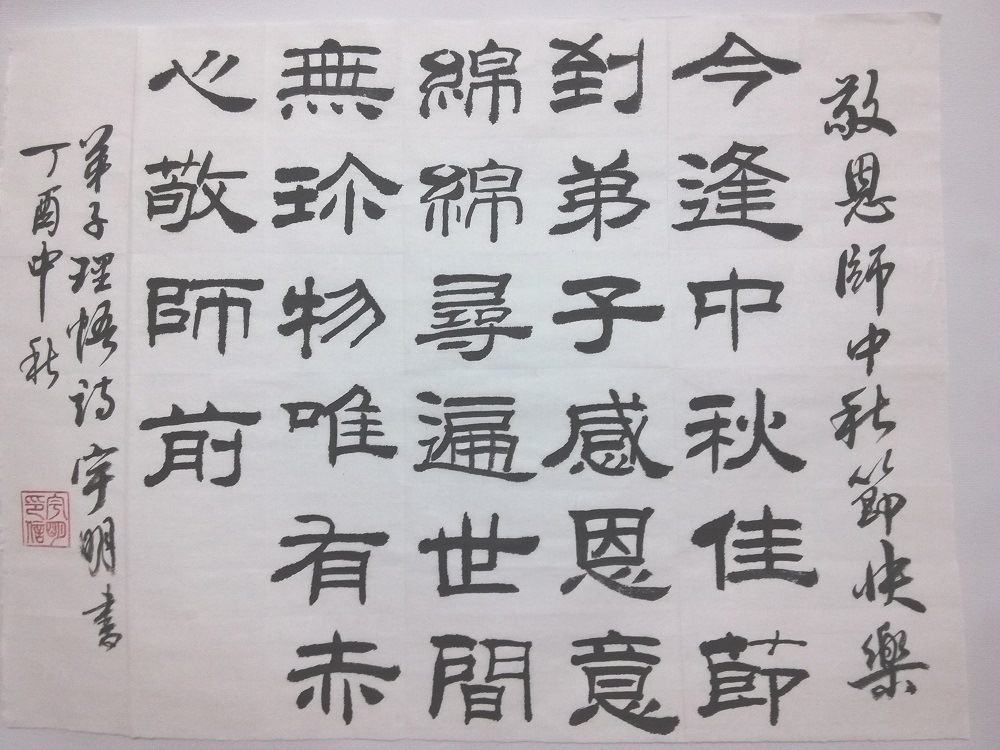 敬恩師中秋節快樂
今逢中秋佳節
到弟子感恩意
綿綿尋遍世間
無珎物唯有赤
心敬師前
弟子理悟詩宇明書
丁酉中秋
宇明
印信